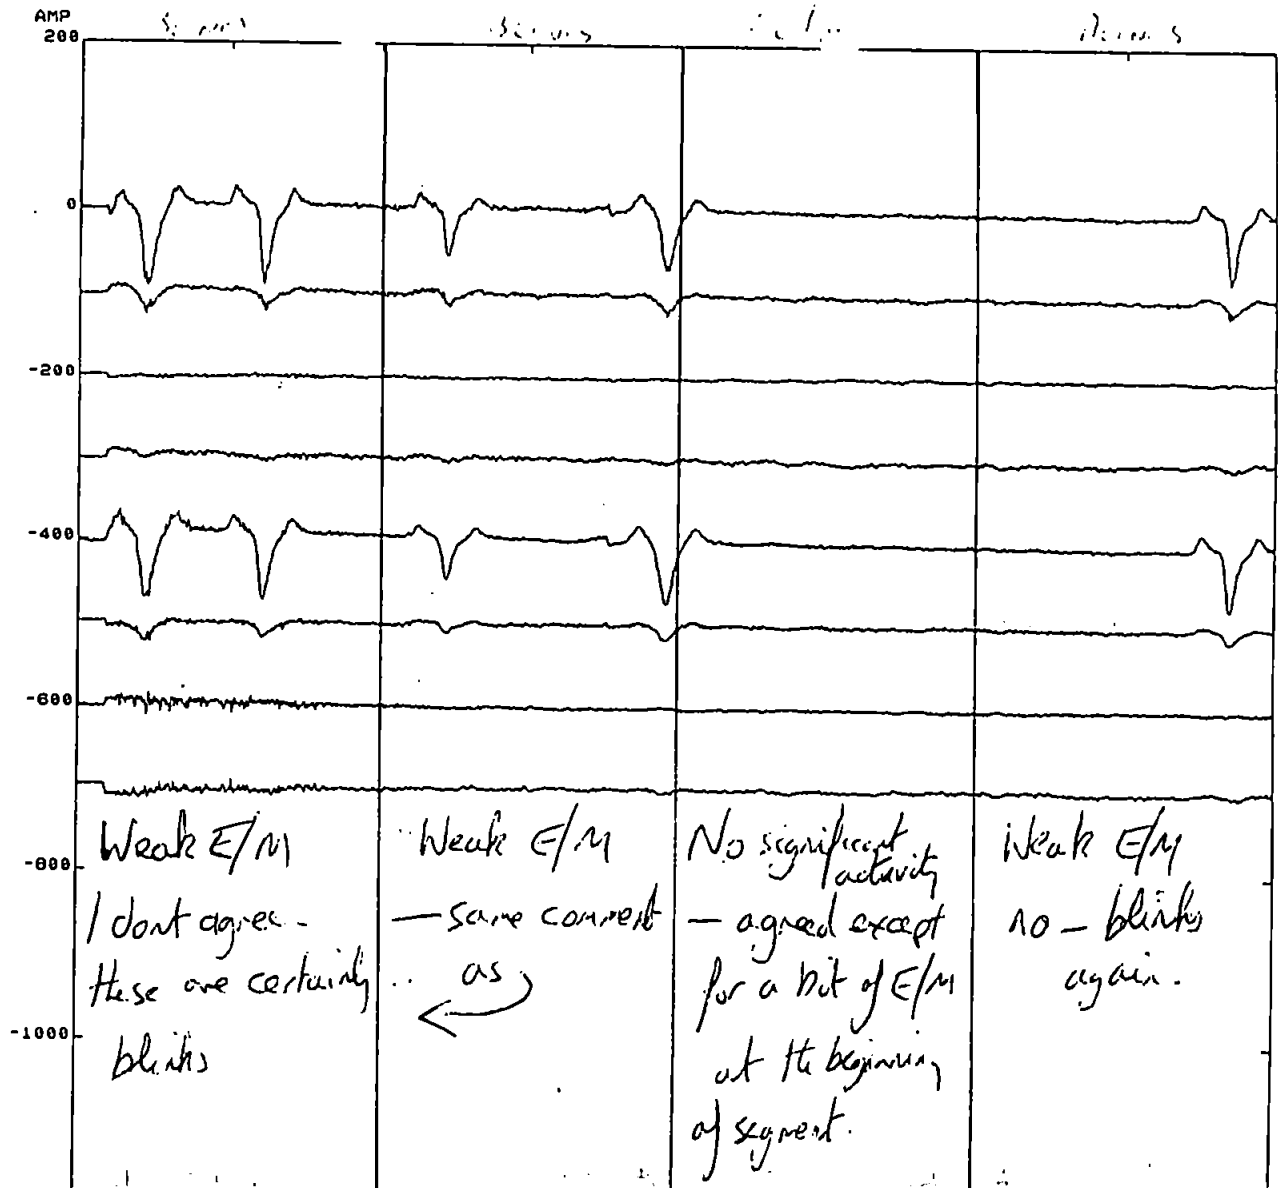 AMP
200
0
-200
-400
-600
-800
-1000
Weak E/M
I dont agree -
these are certainly
blinks
Weak E/M
— same comment
as
No significant
activity
— agreed except
for a bit of E/M
at the beginning
of segment.
Weak E/M
no — blinks
again.